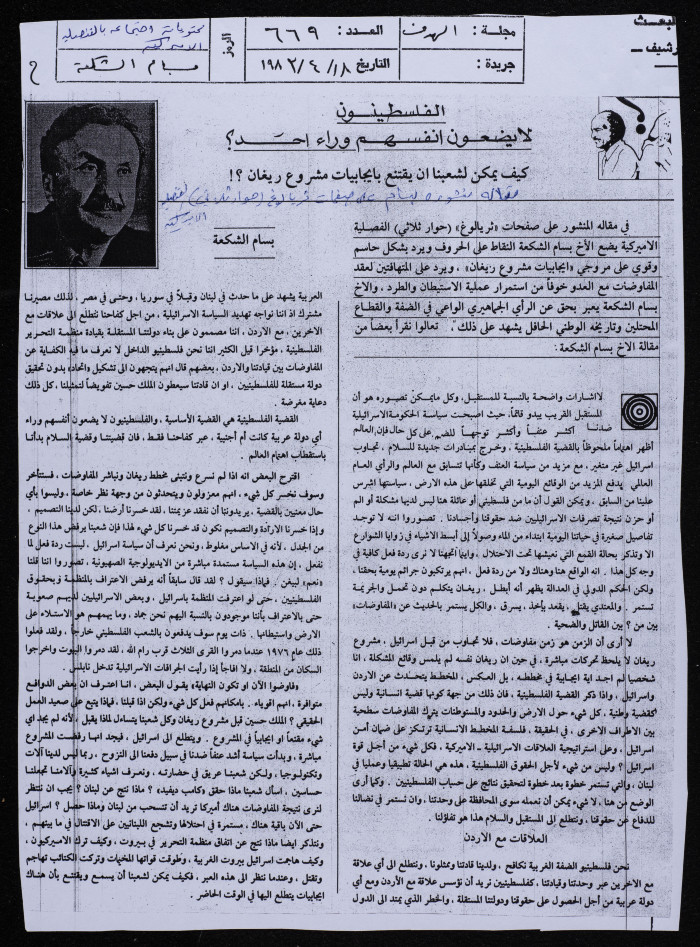 للبحث
رشيف ـ
مجلة : الهدف
جريدة :
العدد : ٦٦٩
التاريخ ١٨/ ٤/ ١٩٨٣
الرمز
بسام الشكعة
الفلسطينيون
لا يضعون انفسهم وراء احد ؟
كيف يمكن لشعبنا ان يقتنع بايجابيات مشروع ريغان ؟!
بسام الشكعة
في مقاله المنشور على صفحات «تريالوغ» (حوار ثلاثي) الفصلية
الاميركية يضع الأخ بسام الشكعة النقاط على الحروف ويرد بشكل حاسم
وقوي على مروجي «ايجابيات مشروع ريغان» ، ويرد على المتهافتين لعقد
المفاوضات مع العدو خوفاً من استمرار عملية الاستيطان والطرد ، والاخ
بسام الشكعة يعبر بحق عن الرأي الجماهيري الواعي في الضفة والقطاع
المحتلين وتاريخه الوطني الحافل يشهد على ذلك . تعالوا نقرأ بعضاً من
مقالة الاخ بسام الشكعة :
لا اشارات واضحة بالنسبة للمستقبل، وكل ما يمكن تصوره هو أن
المستقبل القريب يبدو قاتماً، حيث اصبحت سياسة الحكومة الاسرائيلية
ضدنا أكثر عنفاً وأكثر توجهاً للضم على كل حال فإن العالم
أظهر اهتماماً ملحوظاً بالقضية الفلسطينية ، وخرج بمبادرات جديدة للسلام . تجاوب
اسرائيل غير متغير ، مع مزيد من سياسة العنف وكأنها تتسابق مع العالم والرأي العام
العالمي يدفع المزيد من الوقائع اليومية التي تخلقها على هذه الارض ، سياستها اشرس
علينا من السابق . ويمكن القول أن ما من فلسطيني أو عائلة هنا ليس لديها مشكلة أو الم
أو حزن نتيجة تصرفات الاسرائيليين ضد حقوقنا وأجسادنا . تصوروا انه لا توجد
تفاصيل صغيرة في حياتنا اليومية ابتداء من الماء وصولاً إلى أبسط الاشياء في زوايا الشوارع
الا وتذكر بحالة القمع التي نعيشها تحت الاحتلال . واينما اتجهنا لا نرى ردة فعل كافية في
وجه كل هذا . انه الواقع هنا وهناك ولا من ردة فعل . انهم يرتكبون جرائم يومية بحقنا ،
ولكن الحكم الدولي في العدالة يظهر أنه أبطل . ريغان يتكلم دون تحمل والجريمة
تستمر . والمعتدي يقتل، يقعد يأخذ ، يسرق . والكل يستمر بالحديث عن «المفاوضات»
بين من ؟ بين القاتل والضحية .
لا أرى أن الزمن هو زمن مفاوضات ، فلا تجاوب من قبل اسرائيل ، مشروع
ريغان لا يلحظ تحركات مباشرة ، في حين ان ريغان نفسه لم يلمس وقائع المشكلة ، انا
شخصياً لم اجد اية ايجابية في مخططه ، بل العكس ، المخطط يتحدث عن الاردن
واسرائيل ، واذا ذكر القضية الفلسطينية ، فان ذلك من جهة كونها قضية انسانية وليس
كقضية وطنية ، كل شيء حول الارض والحدود والمستوطنات يترك المفاوضات سطحية
بين الاطراف الاخرى ، في الحقيقة ، فلسفة المخطط الانسانية ترتكز على ضمان أمن
اسرائيل ، وعلى استراتيجية العلاقات الاسرائيلية ـ الاميركية ، فكل شيء من أجل قوة
اسرائيل ؟ وليس من شيء لأجل الحقوق الفلسطينية ، هذه هي الحالة تطبيقياً وعملياً في
لبنان ، والتي تستمر خطوة بعد خطوة لتحقيق نتائج على حساب الفلسطينيين . وكما أرى
الوضع من هنا ، لا شيء يمكن أن نعمله سوى المحافظة على وحدتنا ، وان نستمر في نضالنا
للدفاع عن حقوقنا ، ونتطلع إلى المستقبل والسلام هذا هو تفاؤلنا .
العلاقات مع الاردن
نحن فلسطينيو الضفة الغربية نكافح ، ولدينا قادتنا وممثلونا ، ونتطلع الى أي علاقة
مع الآخرين عبر وحدتنا وقيادتنا ، كفلسطينيين نريد أن نؤسس علاقة مع الأردن ومع أي
دولة عربية من أجل الحصول على حقوقنا ودولتنا المستقلة ، والخطر الذي يمتد الى الدول
العربية يشهد على ما حدث في لبنان وقبلاً في سوريا ، وحتى في مصر ، لذلك مصيرنا
مشترك اذ اننا نواجه تهديد السياسة الاسرائيلية ، من اجل كفاحنا نتطلع الى علاقات مع
الآخرين ، مع الاردن ، اننا مصممون على بناء دولتنا المستقلة بقيادة منظمة التحرير
الفلسطينية ، مؤخرا قيل الكثير اننا نحن فلسطينيو الداخل لا نعرف ما فيه الكفاية عن
المفاوضات بين قيادتنا والاردن ، بعضهم قال انهم يتجهون الى تشكيل «اتحاد» بدون تحقيق
دولة مستقلة للفلسطينيين ، او ان قادتنا سيعطون الملك حسين تفويضاً لتمثيلنا ، كل ذلك
دعاية مغرضة .
القضية الفلسطينية هي القضية الأساسية ، والفلسطينيون لا يضعون أنفسهم وراء
أي دولة عربية كانت أم أجنبية ، عبر كفاحنا فقط ، فان قضيتنا وقضية السلام بدأتا
باستقطاب اهتمام العالم .
اقترح البعض انه اذا لم نسرع ونتبنى مخطط ريغان ونباشر المفاوضات ، فستتأخر
وسوف نخسر كل شيء ، انهم معزولون ويتحدثون من وجهة نظر خاصة ، وليسوا بأي
حال معنيين بالقضية ، يريدوننا أن نفقد عزيمتنا ، لقد خسرنا أرضنا ، لكن لدينا التصميم ،
وإذا خسرنا الارادة والتصميم نكون قد خسرنا كل شيء لهذا فإن شعبنا يرفض هذا النوع
من الجدل . لأنه في الاساس مغلوط ، ونحن نعرف أن سياسة اسرائيل ، ليست ردة فعل لما
نفعل . إن هذه السياسة مستمدة مباشرة من الايديولوجية الصهيونية . تصوروا اننا قلنا
«نعم» لبيغن . فإذا سيقول ؟ لقد قال سابقاً أنه يرفض الاعتراف بالمنظمة وبحقوق
الفلسطينيين . حتى لو اعترفت المنظمة باسرائيل . وبعض الاسرائيليين لديهم صعوبة
حتى بالاعتراف بأننا موجودون بالنسبة اليهم نحن جماد ، وما يهمهم هو الاستلاء على
الارض واستيطانها . ذات يوم سوف يدفعون بالشعب الفلسطيني خارجاً ، ولقد فعلوا
ذلك عام ١٩٧٦ عندما دمروا القرى الثلاث قرب رام الله ، لقد دمروا البيوت واخرجوا
السكان من المنطقة ، ولا افاجأ إذا رأيت الجرافات الاسرائيلية تدخل نابلس .
«فاوضوا الآن او تكون النهاية» يقول البعض ، انا اعترف ان بعض الدوافع
متوافرة ، انهم اقوياء . بامكانهم فعل كل شيء ولكن اذا قبلنا ، فماذا ينبع على صعيد العمل
الحقيقي ؟ الملك حسين قبل مشروع ريغان وكل شعبنا يتساءل لماذا يقبل ، لأنه لم يجد اي
شيء مقنعاً او ايجابياً في المشروع . ويتطلع الى اسرائيل ، فيجد انها رفضت المشروع
مباشرة ، وبدأت سياسة أشد عنفاً ضدنا في سبيل دفعنا الى النزوح ، ربما ليس لدينا آلات
وتكنولوجيا ، ولكن شعبنا عريق في حضارته ، ونعرف اشياء كثيرة وآلامنا تجعلنا
حساسين ، اسأل شعبنا ماذا حقق «كامب ديفيد» ؟ ماذا نتج عن لبنان ؟ يجب ان ننتظر
لنرى نتيجة المفاوضات هناك أميركا تريد أن تنسحب من لبنان وماذا حصل ؟ اسرائيل
حتى الآن باقية هناك ، مستمرة في احتلالها وتشجع اللبنانيين على الاقتتال في ما بينهم ،
ونتذكر ايضا ماذا نتج عن اتفاق منظمة التحرير في بيروت ، وكيف ترك الاميركيون ،
وكيف هاجمت اسرائيل بيروت الغربية ، وطوقت قواتها المخيمات وتركت الكتائب تهاجم
وتقتل ، وعندما ننظر الى هذه العبر ، فكيف يمكن لشعبنا أن يسمع ويقتنع بأن هناك
ايجابيات يتطلع اليها في الوقت الحاضر .